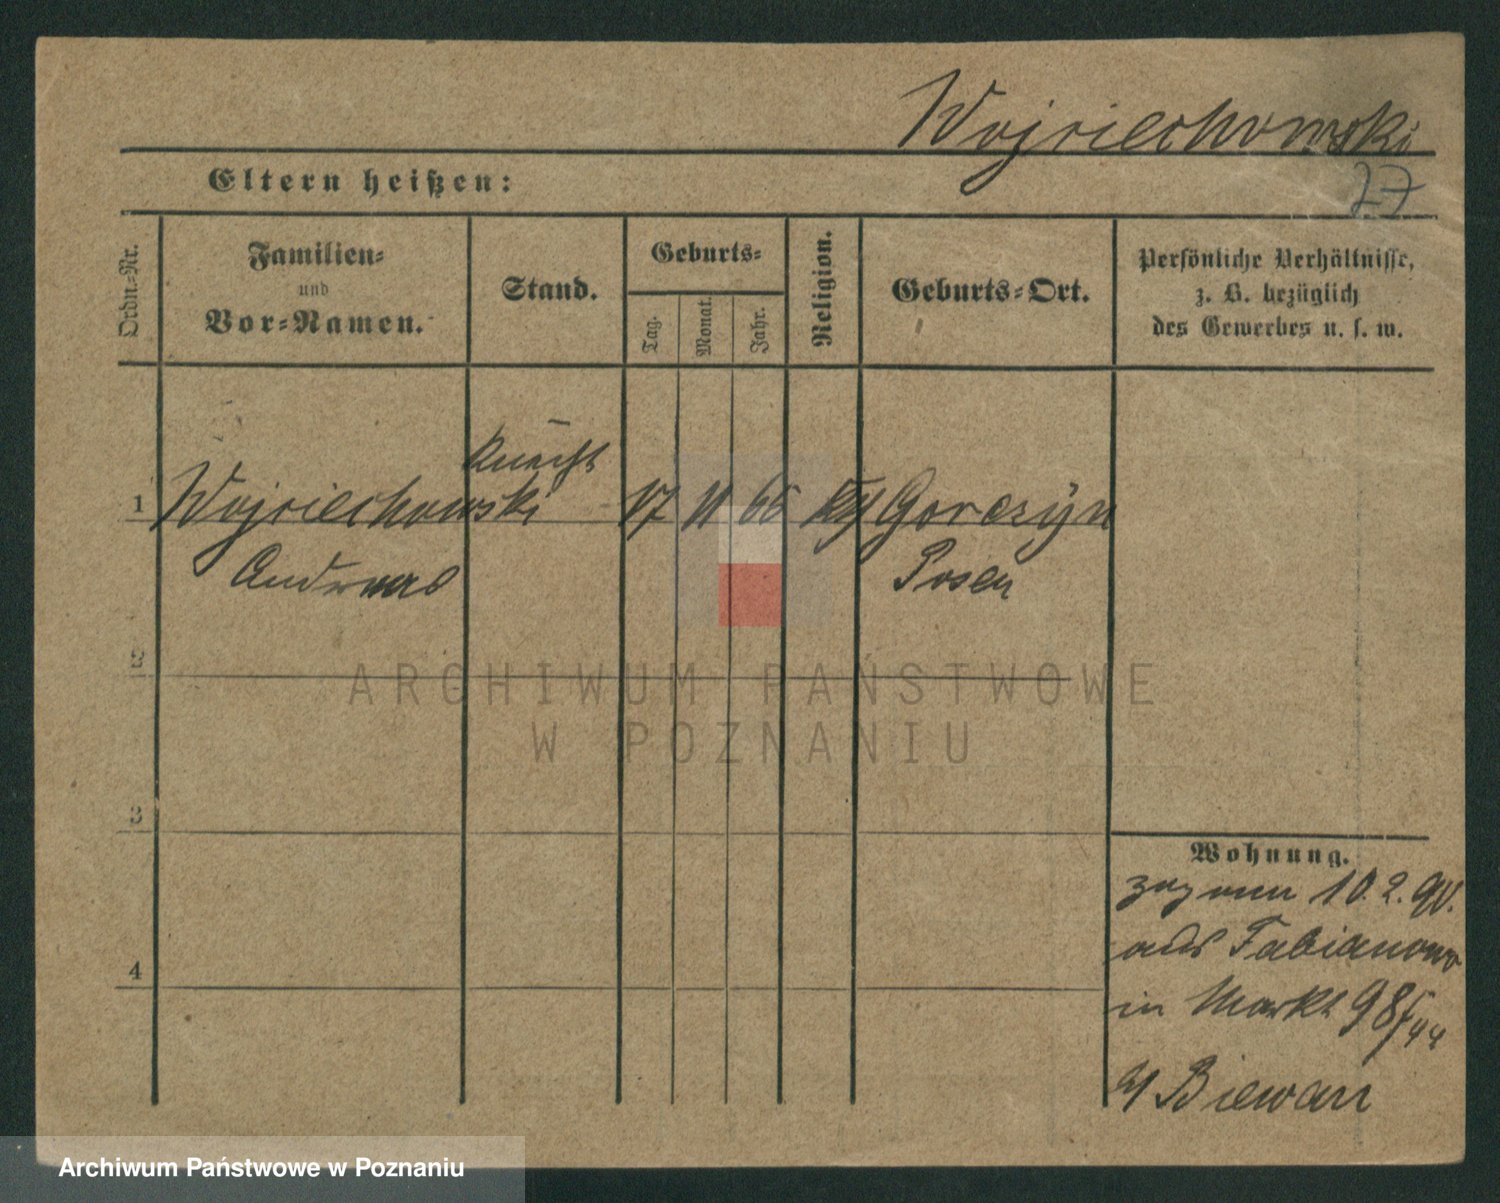 Wojciechowski
27
Eltern heißen:
Ordn.-Nr.
Familien-
und
Vor-Namen.
Stand.
Geburts-
Tag.
Monat.
Jahr.
Religion.
Geburts-Ort.
Persönliche Verhältnisse,
z. B. bezüglich
des Gewerbes u. s. w.
Knecht
1 Wojciechowski 17 11 66 Gorczyn
Andreas Posen
2
3
4
ARCHIWUM PAŃSTWOWE
W POZNANIU
Wohnung.
10.2.90.
aus Fabianowo
in Markt 98/44
Archiwum Państwowe w Poznaniu